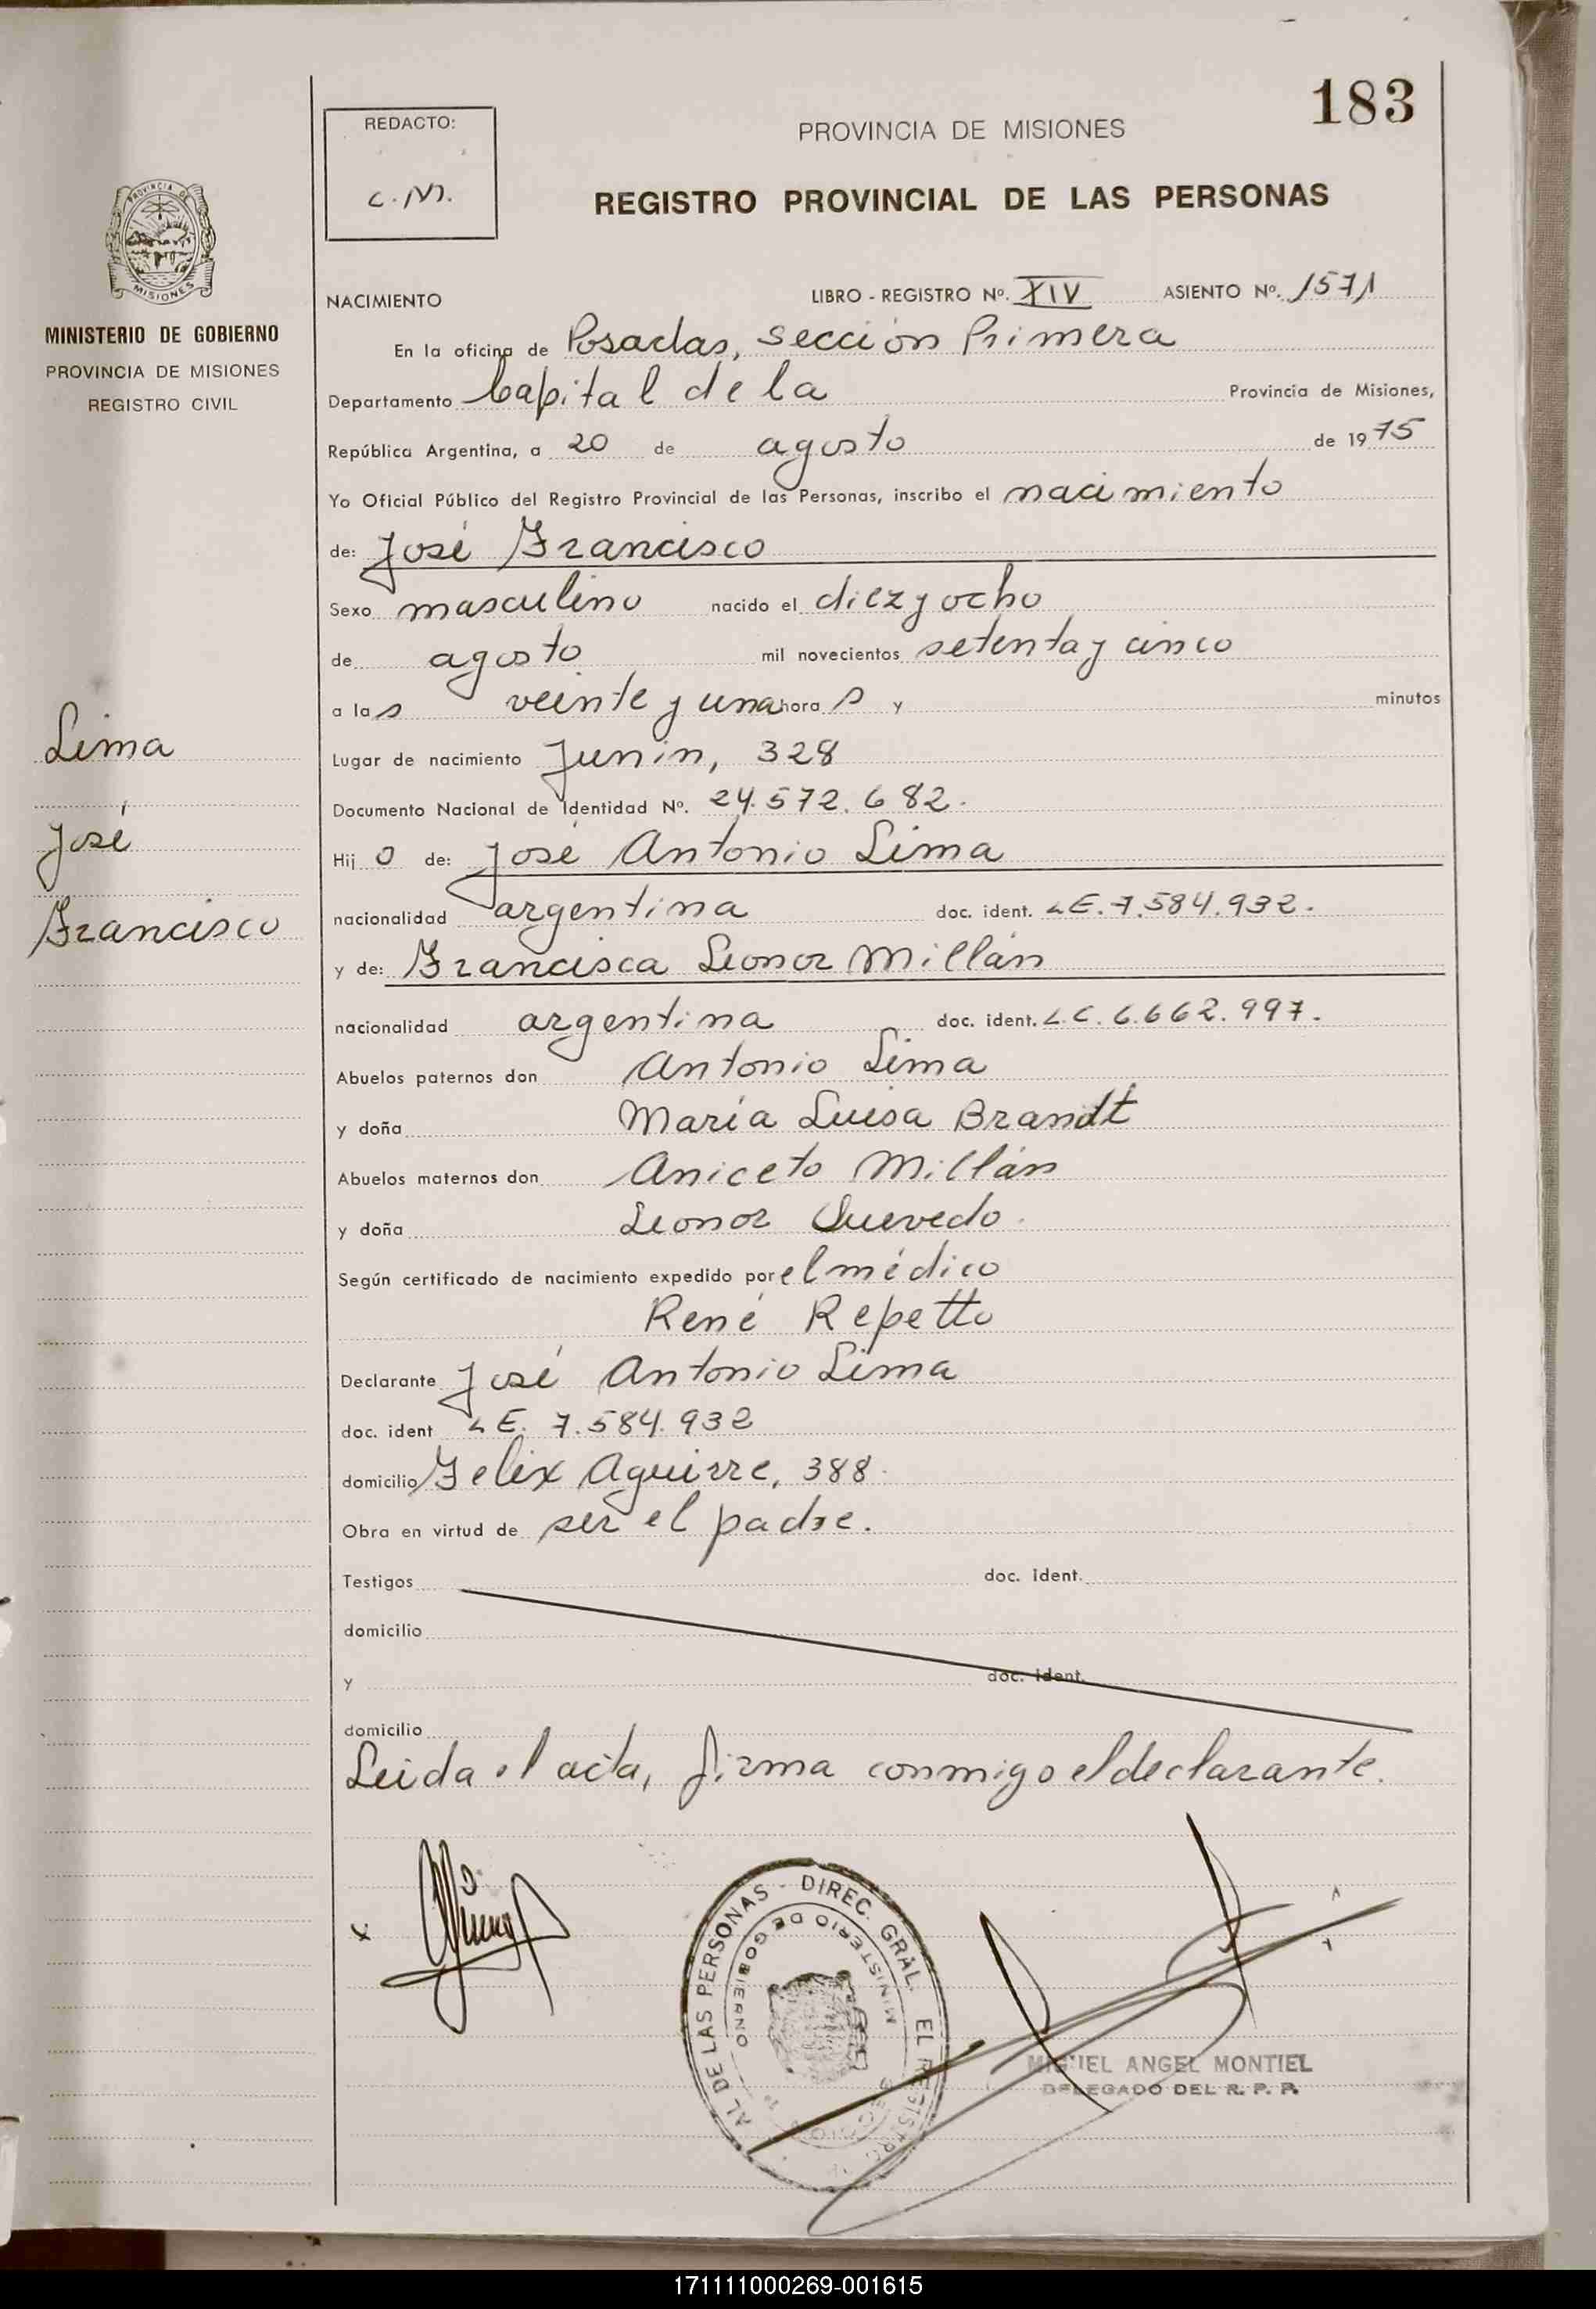 183
REDACTO:
C.M.
PROVINCIA DE MISIONES
REGISTRO PROVINCIAL DE LAS PERSONAS
PROVINCIA DE
MISIONES
MINISTERIO DE GOBIERNO
PROVINCIA DE MISIONES
REGISTRO CIVIL
Lima
José
Francisco
NACIMIENTO LIBRO - REGISTRO Nº. XIV ASIENTO Nº. 1571
En la oficina de Posadas, sección Primera
Departamento Capital de la Provincia de Misiones,
República Argentina, a 20 de agosto de 1975
Yo Oficial Público del Registro Provincial de las Personas, inscribo el nacimiento
de: José Francisco
Sexo masculino nacido el diez y ocho
de agosto mil novecientos setenta y cinco
a las veinte y una horas y minutos
Lugar de nacimiento Junín, 328
Documento Nacional de Identidad Nº. 24.572.682.
Hijo de: José Antonio Lima
nacionalidad argentina doc. ident. LE. 7.584.932.
y de: Francisca Leonor Millán
nacionalidad argentina doc. ident. L.C. 6.662.997.
Abuelos paternos don Antonio Lima
y doña María Luisa Brandt
Abuelos maternos don Aniceto Millán
y doña Leonor Quevedo.
Según certificado de nacimiento expedido por el médico
René Repetto
Declarante José Antonio Lima
doc. ident LE. 7.584.932
domicilio Felix Aguirre, 388.
Obra en virtud de ser el padre.
Testigos doc. ident.
domicilio
y doc. ident.
domicilio
Leida el acta, firma conmigo el declarante.
x
AL DE LAS PERSONAS - DIREC. GRAL. EL REGISTRO
MINISTERIO DE GOBIERNO
MIGUEL ANGEL MONTIEL
DELEGADO DEL R. P. P.
171111000269-001615